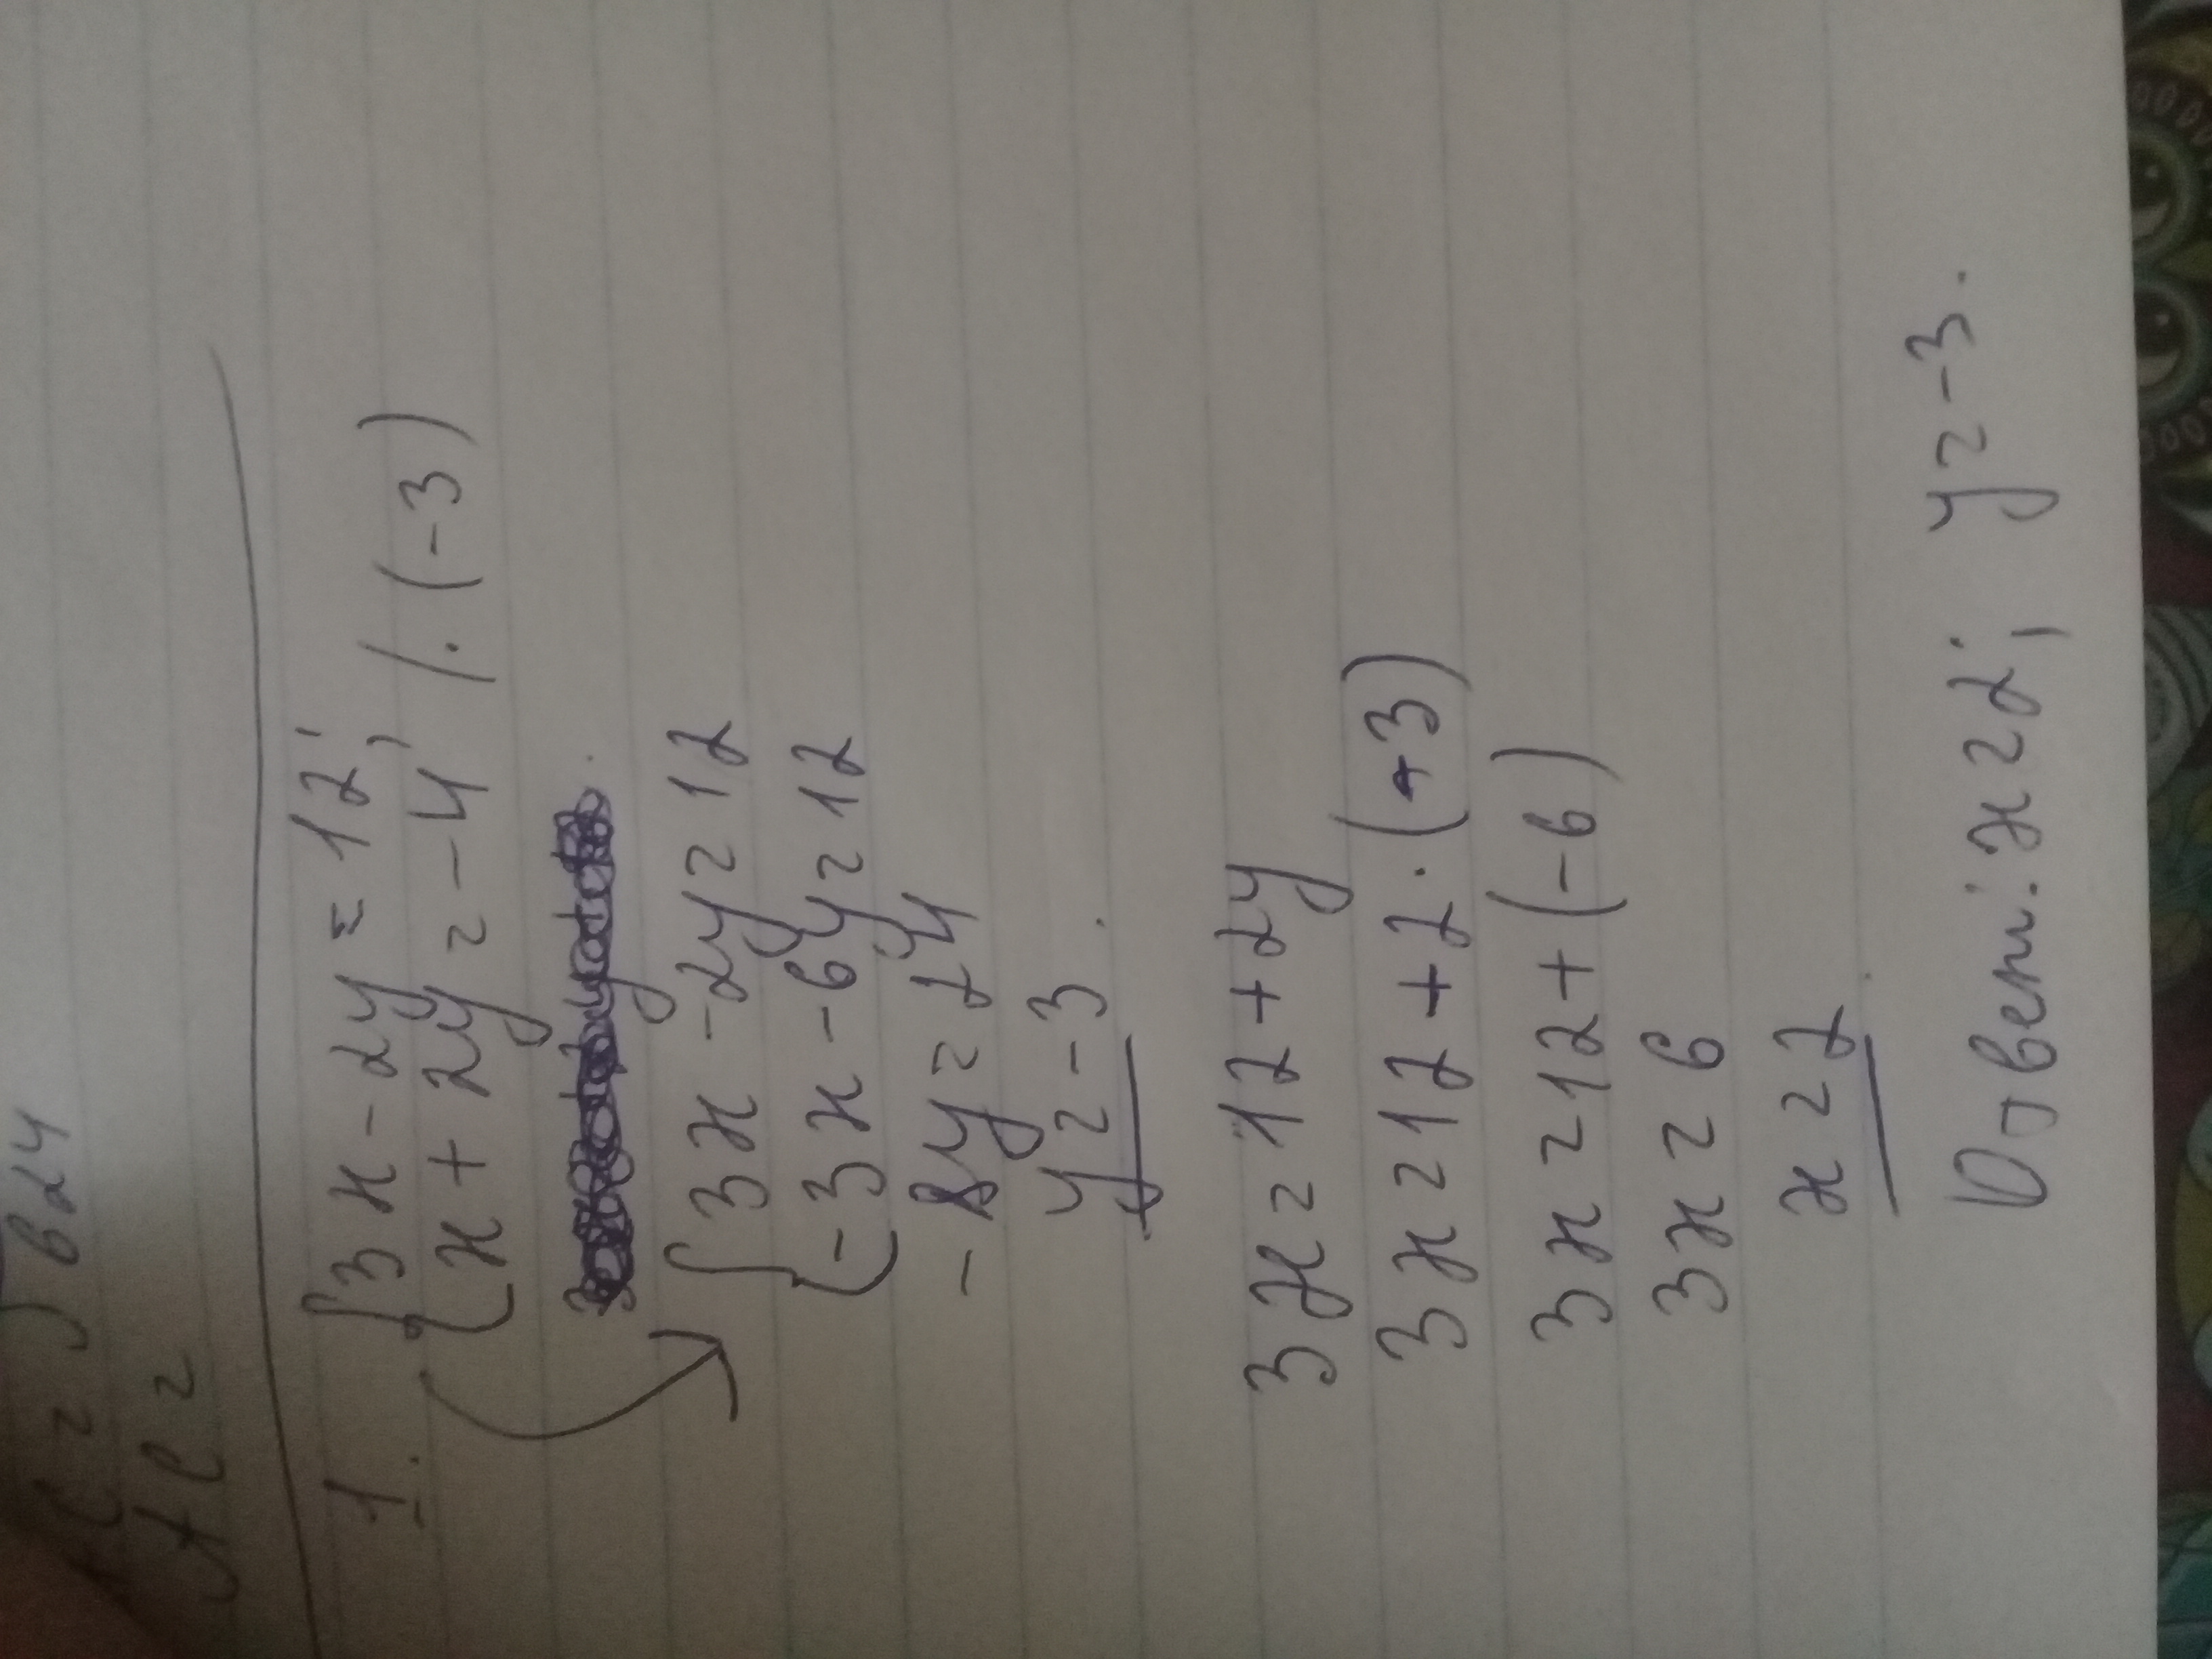 1. { 3x - 2y = 12;
x + 2y = -4; /·(-3)
{ 3x - 2y = 12
-3x - 6y = 12
-8y = 24
y = -3
3x = 12 + 2y
3x = 12 + 2·(-3)
3x = 12 + (-6)
3x = 6
x = 2
Ответ: x = 2; y = -3.